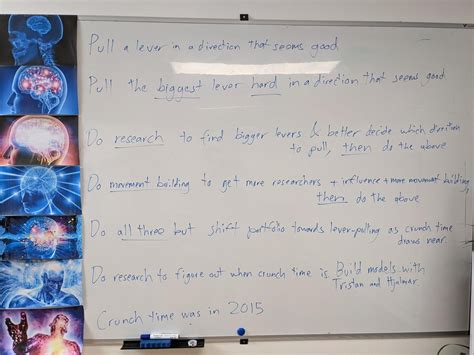 Pull a lever in a direction that seems good
Pull the biggest lever hard in a direction that seems good
Do research to find bigger levers & better decide which direction
to pull, then do the above
Do movement building to get more researchers + influence + more movement building,
then do the above
Do all three but shift portfolio towards lever-pulling as crunch time
draws near
Do research to figure out when crunch time is
Build models with
Tristan and Hjalmar
Crunch time was in 2015